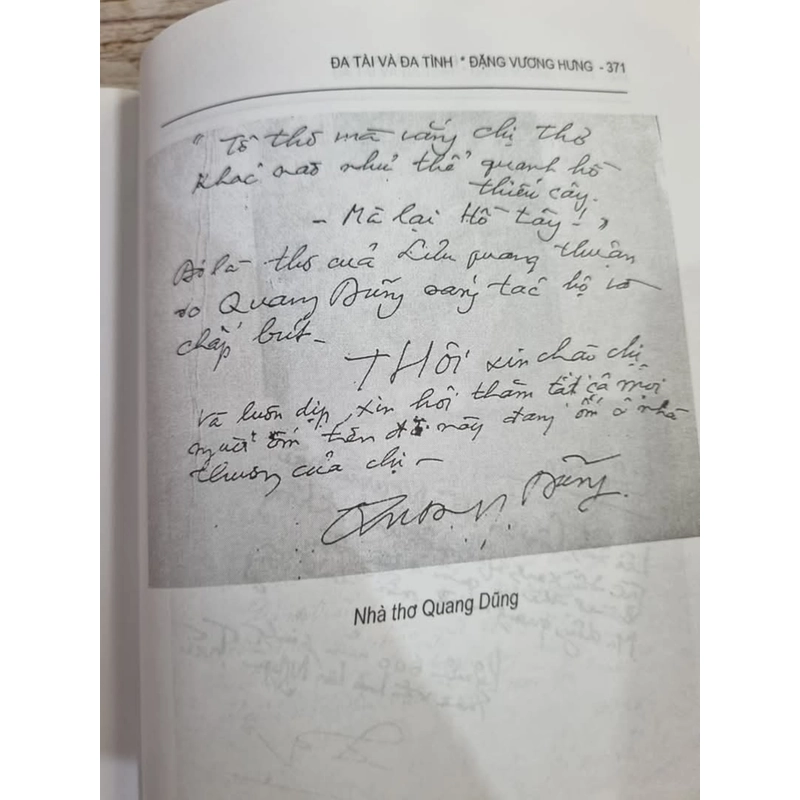 ĐA TÀI VÀ ĐA TÌNH * ĐẶNG VƯƠNG HƯNG - 371
"Tổ thơ mà vắng chị Thơ
Khác nào như thể quanh hồ
thiếu cây.
- Mà lại Hồ Tây! "
Đó là thơ của Lưu quang thuận
do Quang Dũng sáng tác hộ và
chấp bút -
THÔI xin chào chị
và luôn dịp, xin hỏi thăm tất cả mọi
người ốm trên đời này đang ốm ở nhà
thương của chị -
Quang Dũng.
Nhà thơ Quang Dũng